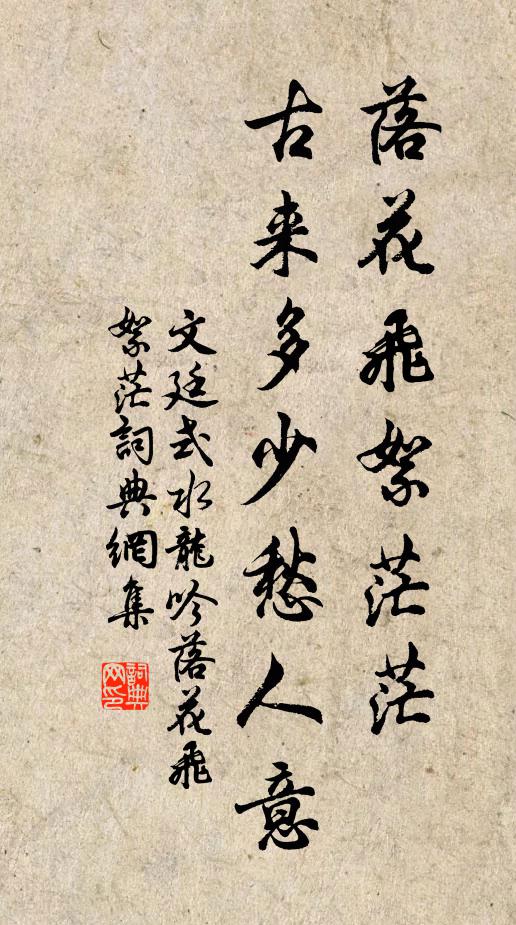 落花飛絮茫茫
古来多少愁人意
文廷式水龍吟落花飛
絮茫詞典網集
詞典
网印